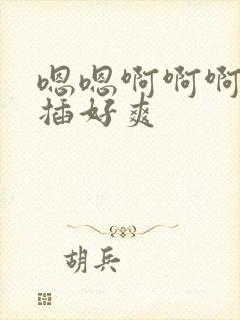 嗯嗯啊啊啊
插好爽
胡兵